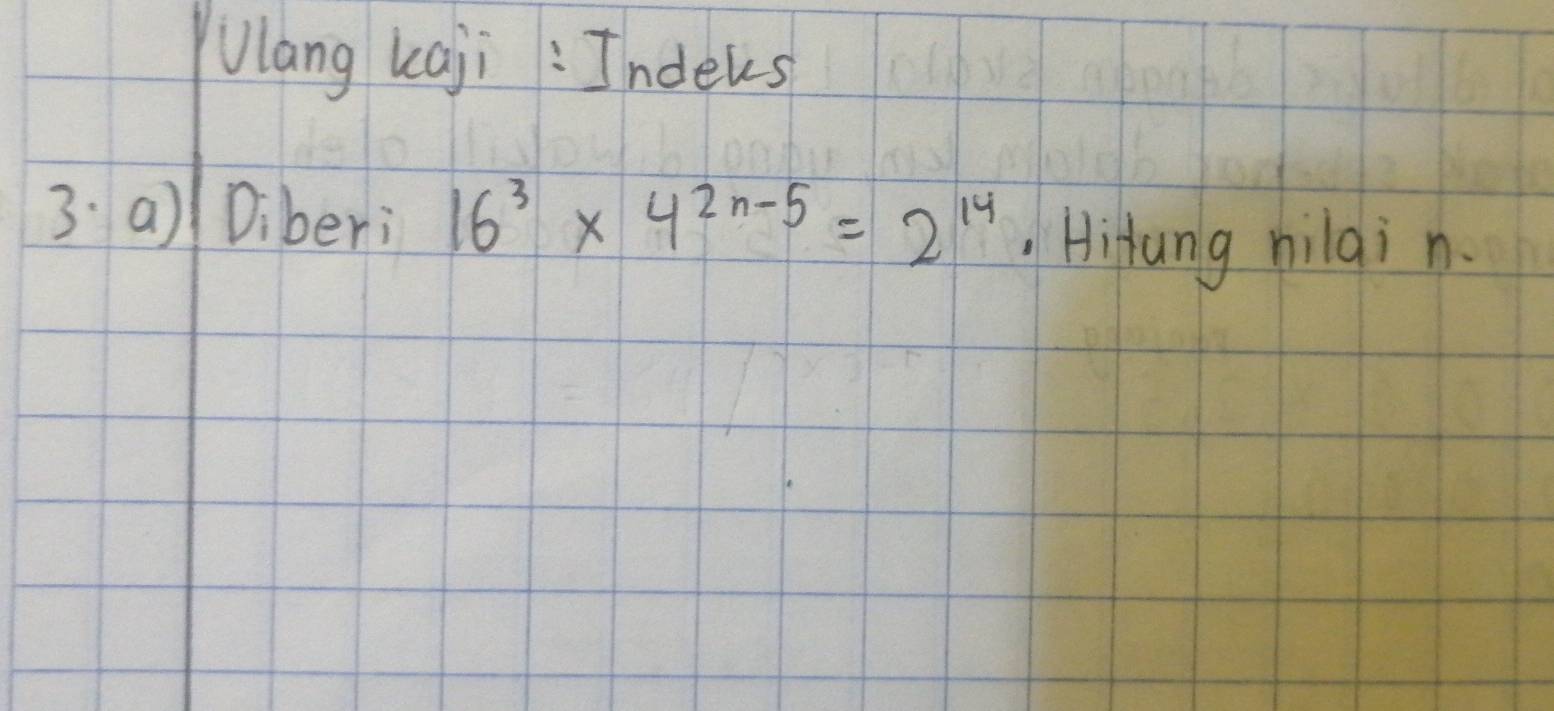 Ulang kaji : Indeks
3. a) Diberi 16³ × 4²ⁿ⁻⁵ = 2¹⁴. Hitung nilai n.